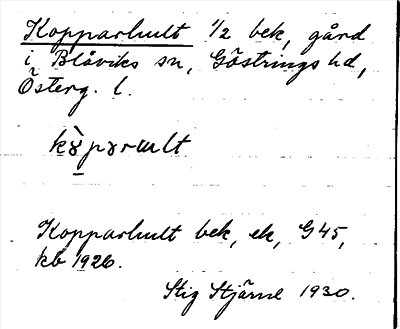 Kopparhult 1/2 bek, gård
i Blåviks sn, Göstrings hd,
Österg. l.
Kopparhult bek, ek, G45,
kb 1926.
Stig Stjärne 1930.